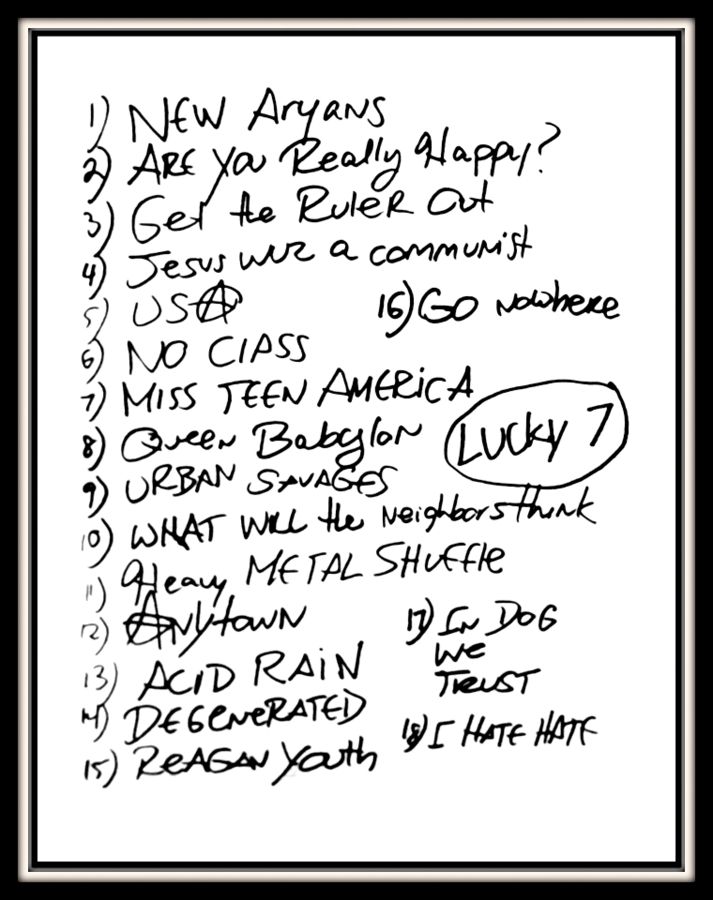 1) NEW Aryans
2) ARE You Really Happy?
3) Get the RULER Out
4) Jesus wuz a communist
5) USA
16) GO Nowhere
6) NO ClASS
7) MISS TEEN AMERiCA
Lucky 7
8) Queen Babylon
9) URBAN SAVAGES
10) WHAT Will the Neighbors think
11) Heavy METAL SHUFFlE
12) ANytown
17) IN DOG
WE
TRUST
13) ACID RAiN
14) DEGeNeRATED
18) I HATE HATE
15) ReAGAN Youth